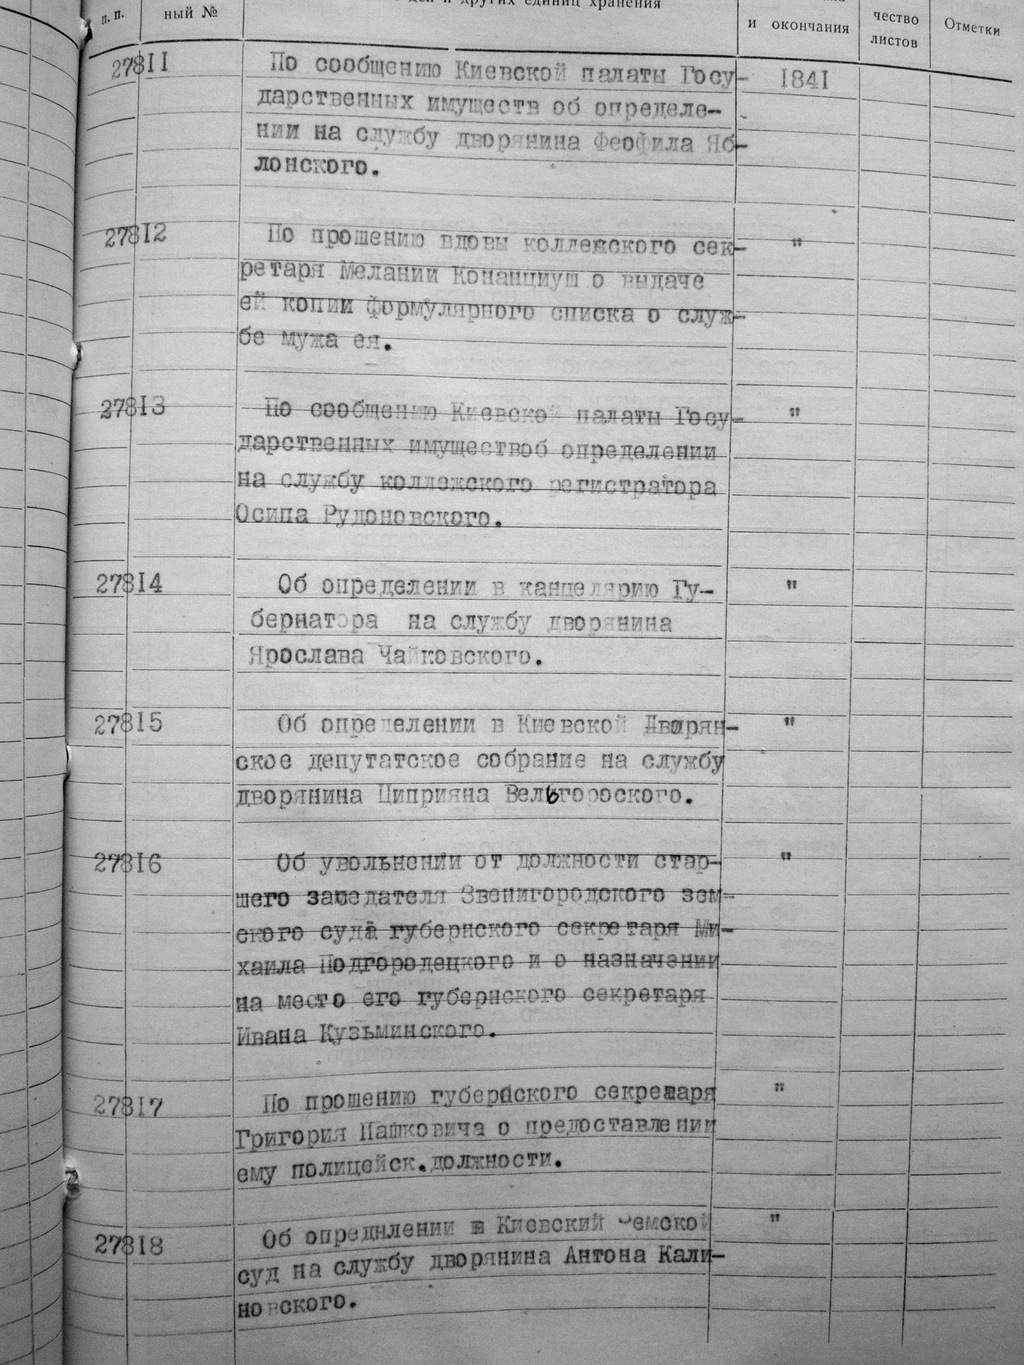 п.п.
ный №
дел и других единиц хранения
и окончания
чество
листов
Отметки
27811 По сообщению Киевской палаты Госу- 1841
дарственных имуществ об определе-
нии на службу дворянина Феофила Яб-
лонского.
27812 По прошению вдовы коллежского сек- "
ретаря Мелании Конанциуш о выдаче
ей копии формулярного списка о служ-
бе мужа ея.
27813 По сообщению Киевской палаты Госу- "
дарственных имуществоб определении
на службу коллежского регистратора
Осипа Рудоновского.
27814 Об определении в канцелярию Гу- "
бернатора на службу дворянина
Ярослава Чайковского.
27815 Об определении в Киевской Дворян- "
ское депутатское собрание на службу
дворянина Циприяна
27816 Об увольнении от должности стар- "
шего заседателя Звенигородского зем-
ского суда губернского секретаря Ми-
хаила Подгородецкого и о назначении
на место его губернского секретаря
Ивана Кузьминского.
27817 По прошению губернского секретаря "
Григория Пашковича о предоставлении
ему полицейск.должности.
27818 Об опреднлении в Киевский земской "
суд на службу дворянина Антона Кали-
новского.